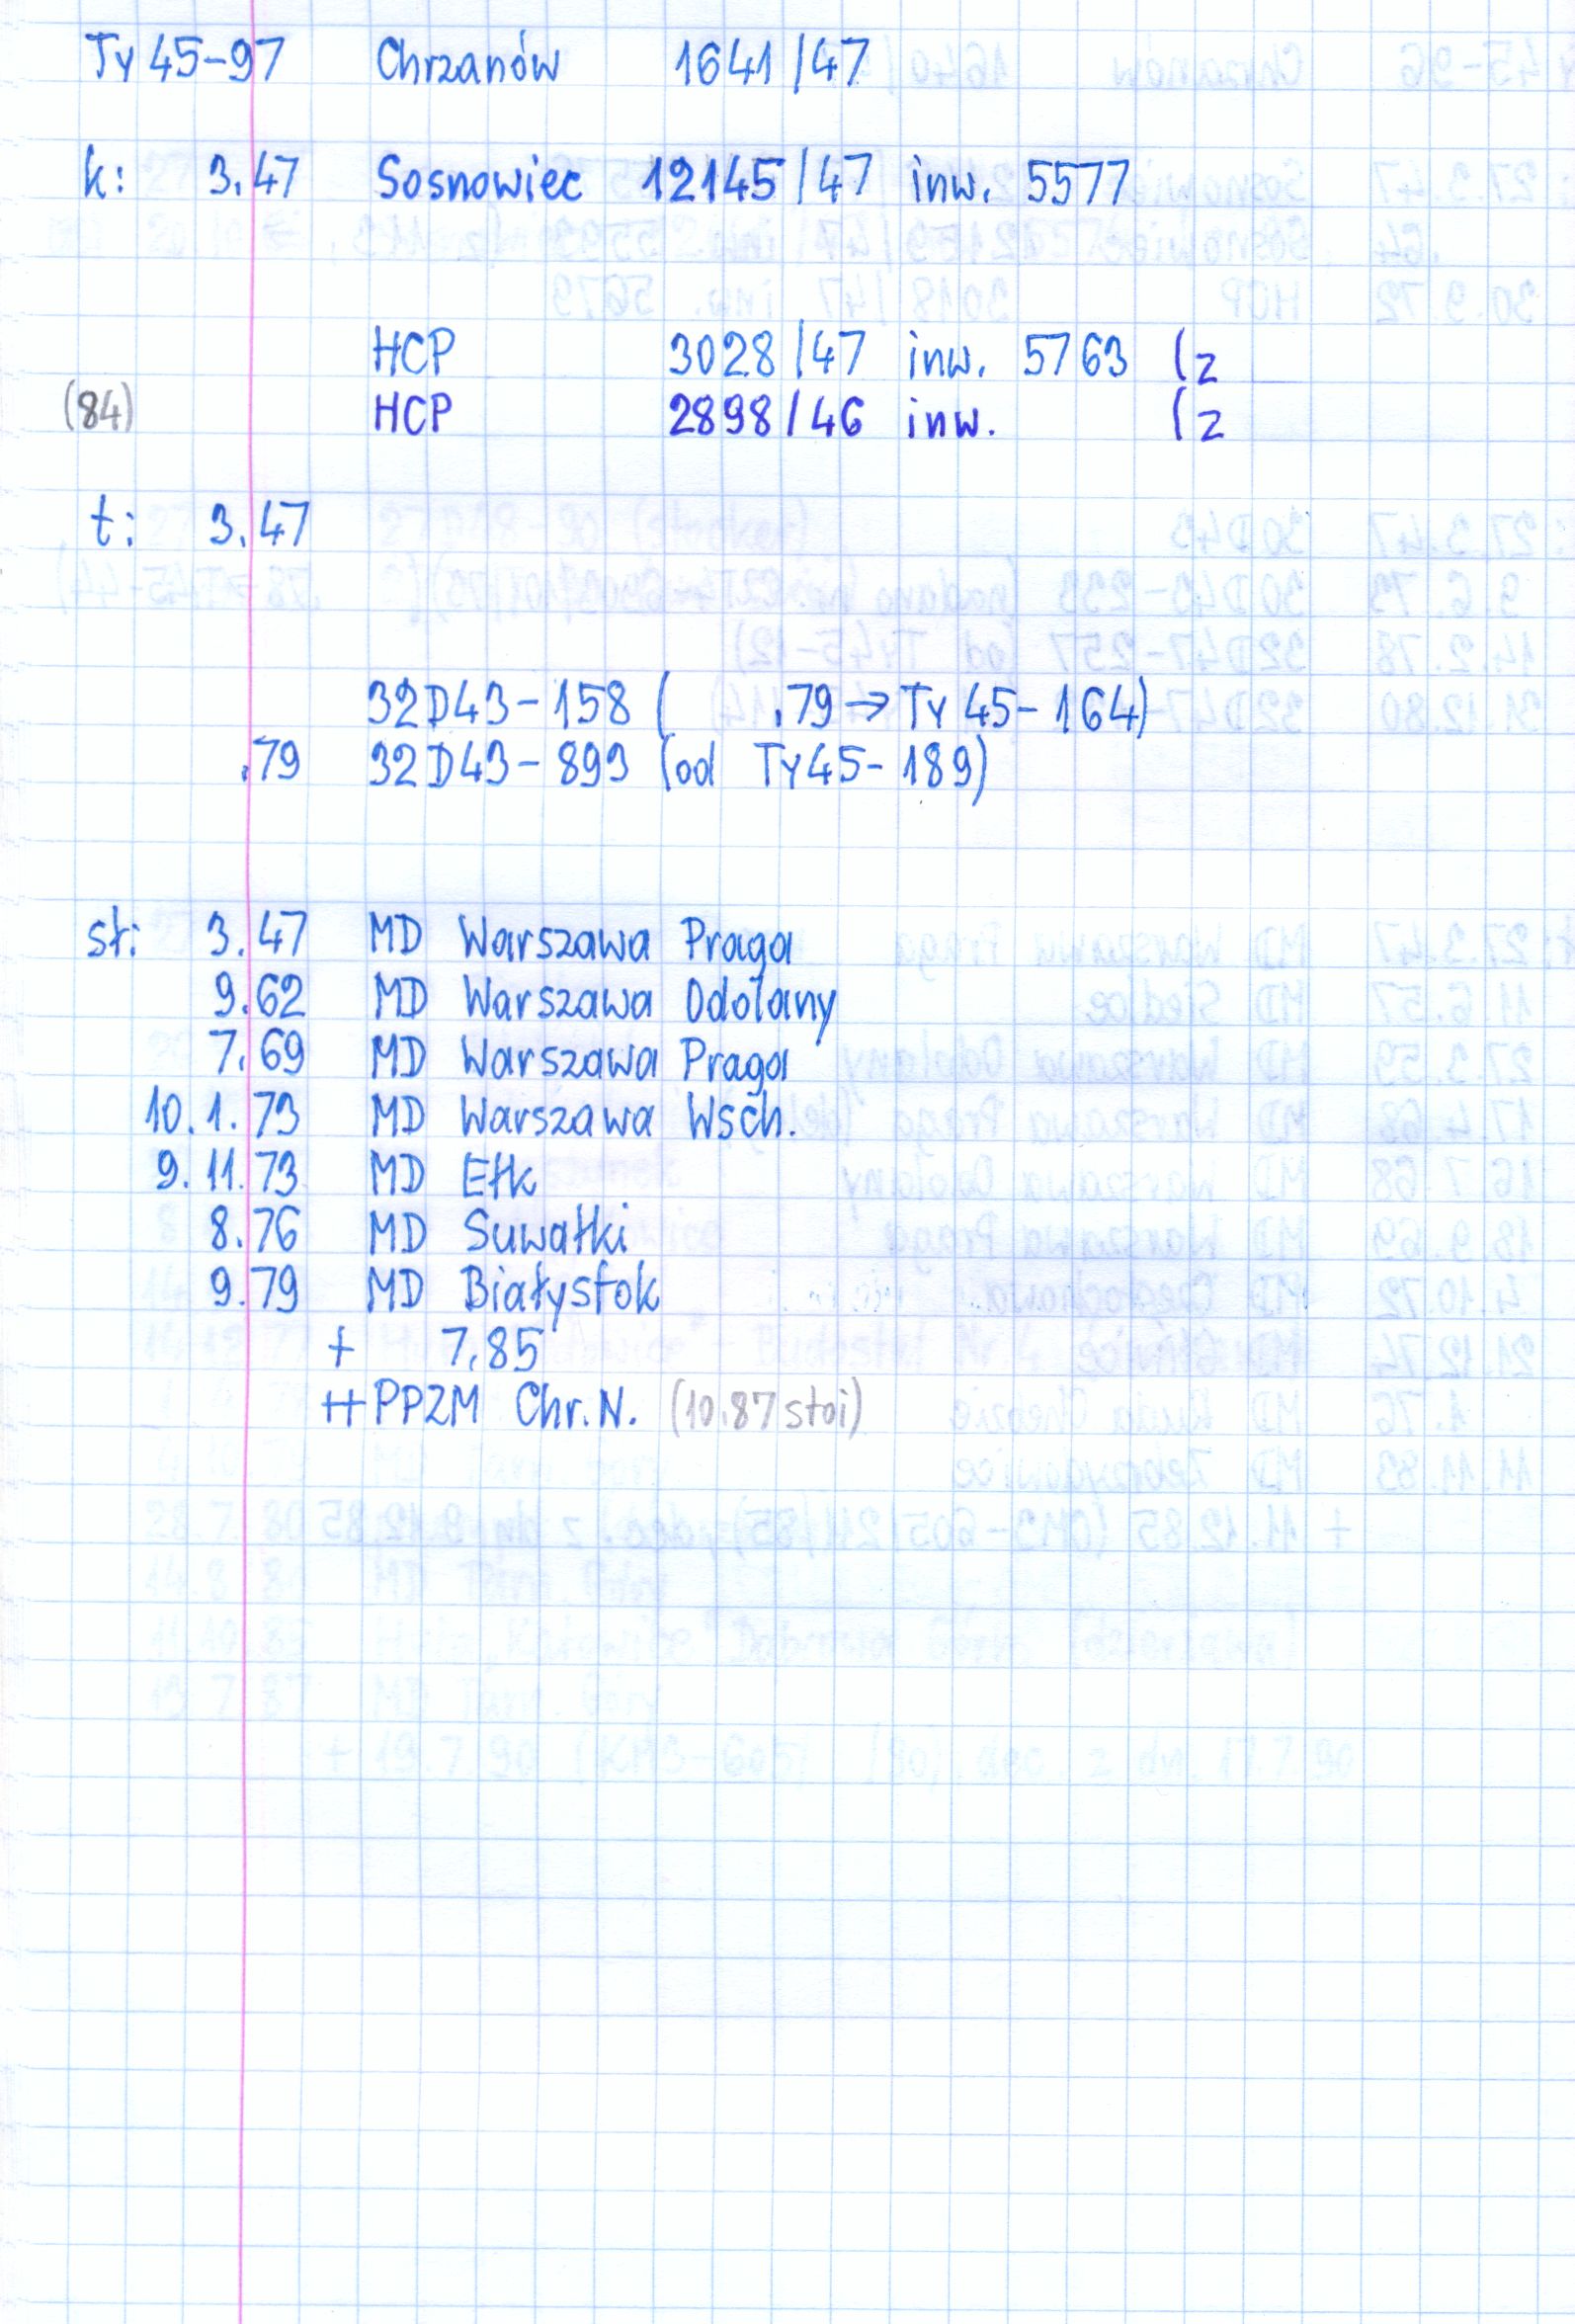 Ty 45-97 Chrzanów 1641/47
k: 3.47 Sosnowiec 12145/47 inw. 5577
HCP 3028/47 inw. 5763 (z
(84) HCP 2898/46 inw. (z
t: 3.47
32D43-158 ( .79 → Ty 45-164)
.79 32D43-893 (od Ty45-189)
st: 3.47 MD Warszawa Praga
9.62 MD Warszawa Odolany
7.69 MD Warszawa Praga
10.1.73 MD Warszawa Wsch.
9.11.73 MD Ełk
8.76 MD Suwałki
9.79 MD Białystok
+ 7.85
++ PPZM Chr.N. (10.87 stoi)